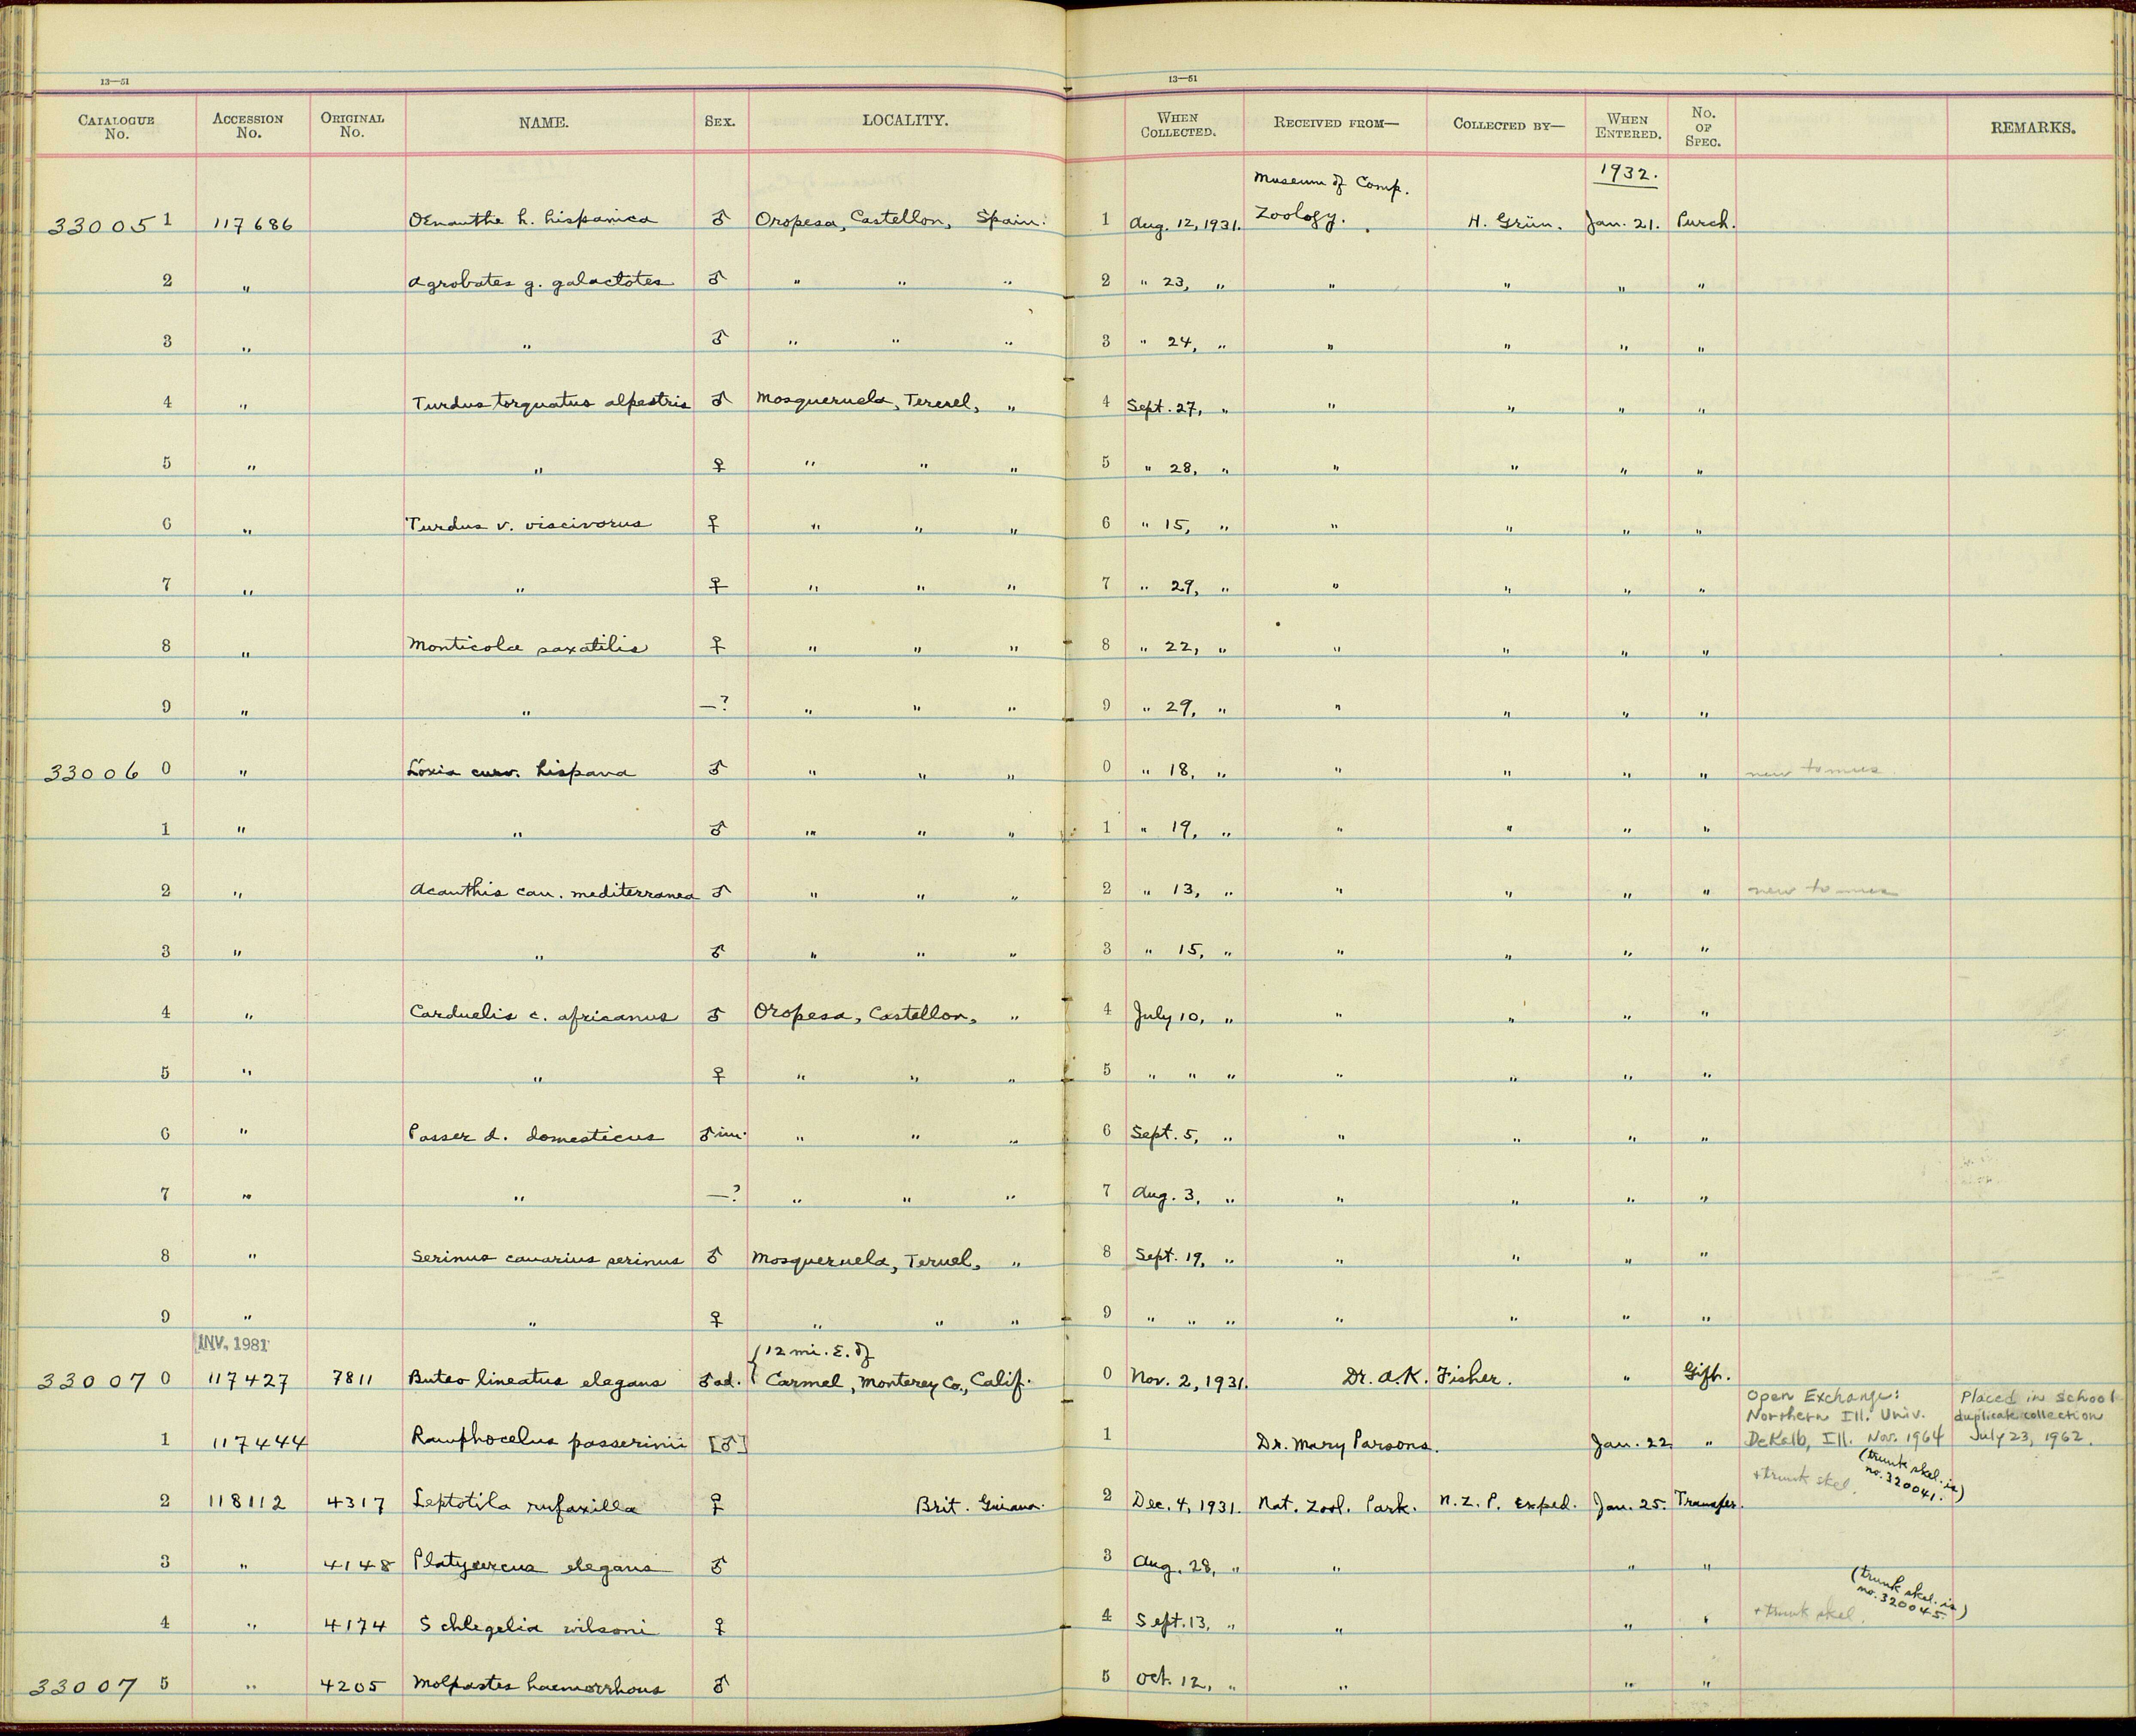 13—51 13—51
CATALOGUE No. ACCESSION No. ORIGINAL No. NAME. SEX. LOCALITY. WHEN COLLECTED. RECEIVED FROM— COLLECTED BY— WHEN ENTERED. No. OF SPEC. REMARKS.
Museum of Comp. 1932.
33005 1 117686 Oenanthe h. hispanica ♂ Oropesa, Castellon, Spain. 1 Aug. 12, 1931. Zoology. H. Grün. Jan. 21. Purch.
2 " Agrobates g. galactotes ♂ " " " 2 " 23, " " " " "
3 " " ♂ " " " 3 " 24, " " " " "
4 " Turdus torquatus alpestris ♂ Mosqueruela, Tererel, " 4 Sept. 27, " " " " "
5 " " ♀ " " " 5 " 28, " " " " "
6 " Turdus v. viscivorus ♀ " " " 6 " 15, " " " " "
7 " " ♀ " " " 7 " 29, " " " " "
8 " Monticola saxatilis ♀ " " " 8 " 22, " " " " "
9 " " —? " " " 9 " 29, " " " " "
33006 0 " Loxia curv. hispana ♂ " " " 0 " 18, " " " " " new to mus.
1 " " ♂ " " " 1 " 19, " " " " "
2 " Acanthis can. mediterranea ♂ " " " 2 " 13, " " " " " new to mus
3 " " ♂ " " " 3 " 15, " " " " "
4 " Carduelis c. africanus ♂ Oropesa, Castellon, " 4 July 10, " " " " "
5 " " ♀ " " " 5 " " " " " " "
6 " Passer d. domesticus ♂ im. " " " 6 Sept. 5, " " " " "
7 " " —? " " " 7 Aug. 3, " " " " "
8 " Serinus canarius serinus ♂ Mosqueruela, Teruel, " 8 Sept. 19, " " " " "
9 " " ♀ " " " 9 " " " " " " "
INV. 1981 12 mi. E. of
33007 0 117427 7811 Buteo lineatus elegans ♂ ad. Carmel, Monterey Co., Calif. 0 Nov. 2, 1931. Dr. A.K. Fisher. " Gift.
Open Exchange: Placed in school
Northern Ill. Univ. duplicate collection
1 117444 Ramphocelus passerinii [♂] 1 Dr. Mary Parsons. Jan. 22. " DeKalb, Ill. Nov. 1964 July 23, 1962.
+ trunk skel. (trunk skel. is
no. 320041.)
2 118112 4317 Leptotila rufaxilla ♀ Brit. Guiana. 2 Dec. 4, 1931. Nat. Zool. Park. N. Z. P. Exped. Jan. 25. Transfer.
3 " 4148 Platycercus elegans ♂ 3 Aug. 28, " " " "
(trunk skel. is
no. 320045.)
4 " 4174 Schlegelia wilsoni ♀ 4 Sept. 13, " " " " + trunk skel.
33007 5 " 4205 Molpastes haemorrhous ♂ 5 Oct. 12, " " " "